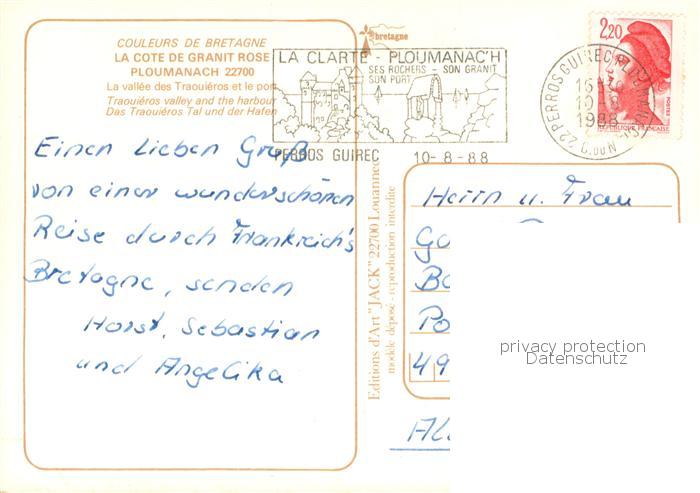 COULEURS DE BRETAGNE
LA COTE DE GRANIT ROSE
PLOUMANACH 22700
La vallée des Traouiéros et le port
Traouiéros valley and the harbour
Das Traouiéros Tal und der Hafen
bretagne
LA CLARTÉ - PLOUMANAC'H
SES ROCHERS - SON GRANIT
SON PORT
PERROS GUIREC 10-8-88
2,20
22 PERROS GUIREC PLOUMANAC'H
16 H
10 - 8
1988
C. DU N.
POSTES
REPUBLIQUE FRANÇAISE
Einen lieben Gruß
von einer wunderschönen
Reise durch Frankreich's
Bretagne, senden
Horst, Sebastian
und Angelika
Editions d'Art "JACK" 22700 Louannec
modèle déposé - reproduction interdite
Herrn u. Frau
Ga
Be
Po
49
All
privacy protection
Datenschutz